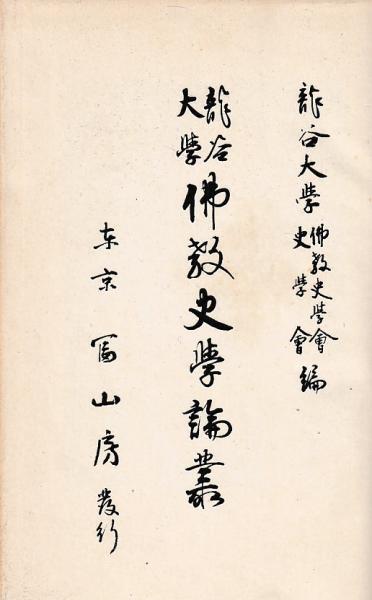 龍谷大學 佛教史學會 史學會 編
龍谷大學 佛教史學論叢
东京 冨山房發行